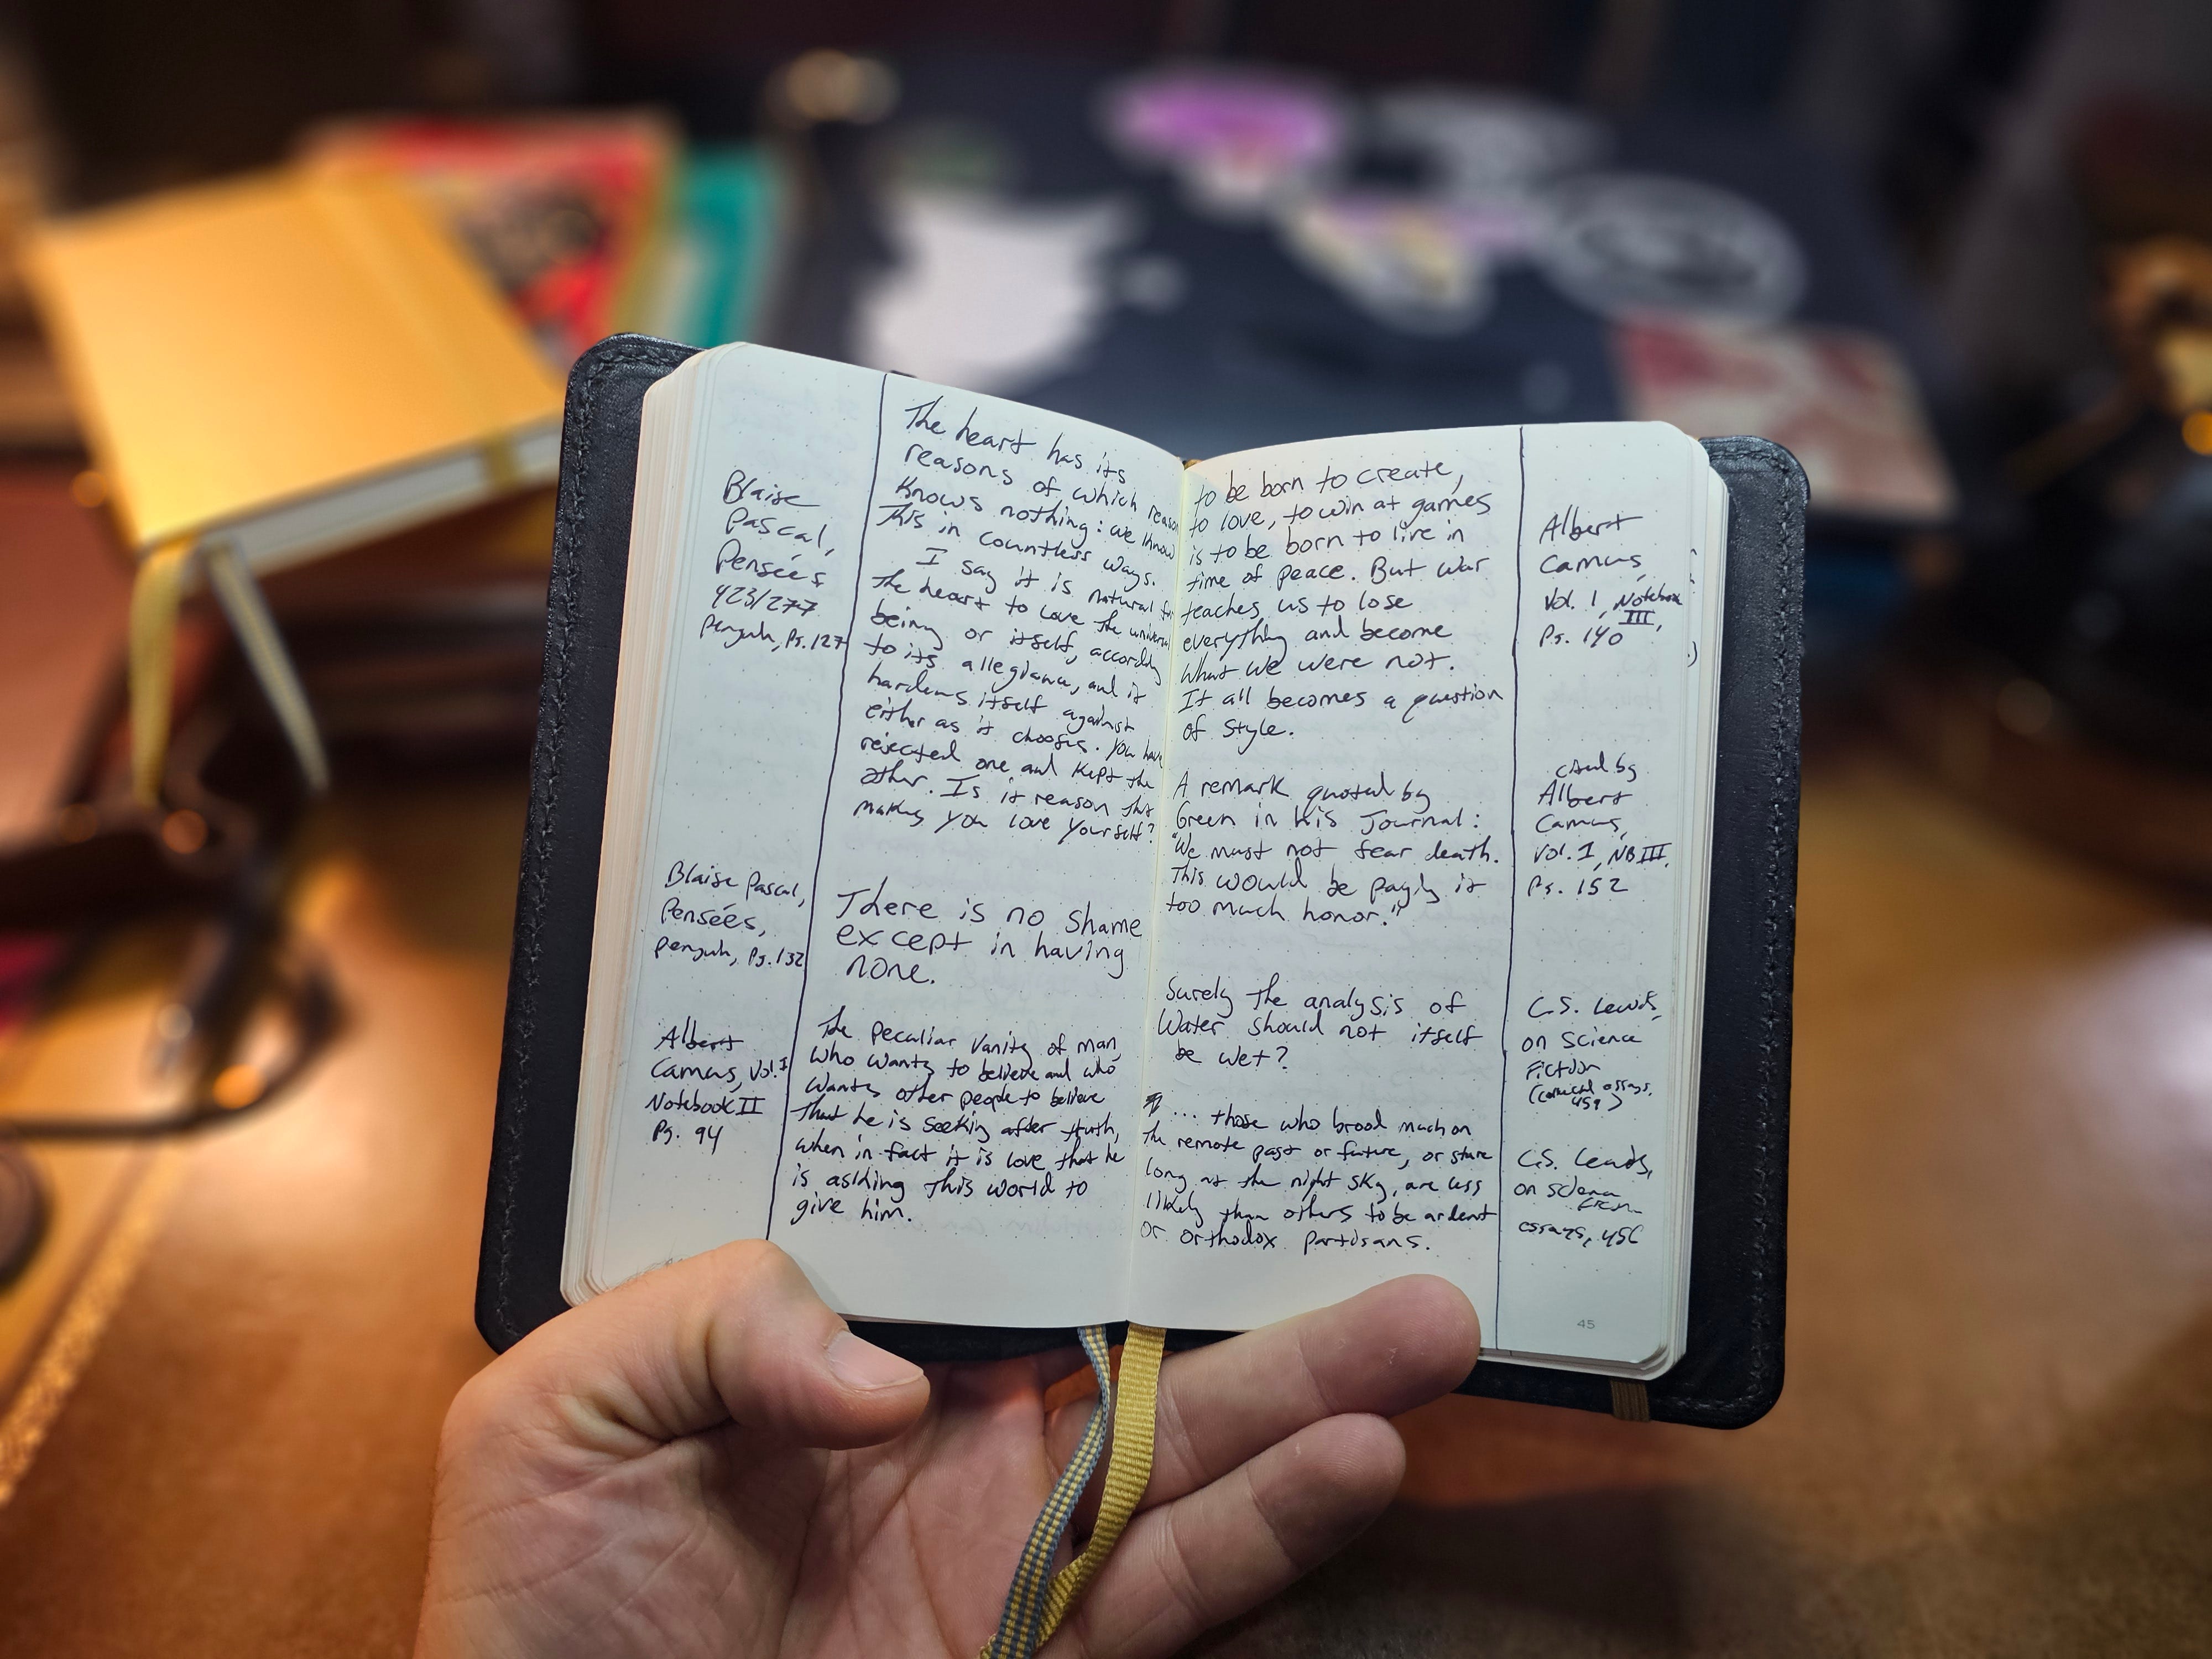 Blaise
Pascal,
Pensées
423/277
penguin, Pg. 127
The heart has its
reasons of which reason
knows nothing: we know
this in countless ways.
I say it is natural for
the heart to love the universal
being or itself, according
to its allegiance, and it
hardens itself against
either as it chooses. You have
rejected one and kept the
other. Is it reason that
makes you love yourself?
Blaise Pascal,
Pensées,
penguin, Pg. 132
There is no shame
except in having
none.
Albert
Camus, Vol. I
Notebook II
Pg. 94
The peculiar vanity of man,
who wants to believe and who
wants other people to believe
that he is seeking after truth,
when in fact it is love that he
is asking this world to
give him.
to be born to create,
to love, to win at games
is to be born to live in
time of peace. But war
teaches us to lose
everything and become
what we were not.
It all becomes a question
of style.
Albert
Camus,
Vol. 1, Notebook
III,
Pg. 140
A remark quoted by
Green in his Journal:
"We must not fear death.
This would be paying it
too much honor."
cited by
Albert
Camus,
Vol. I, NB III,
Pg. 152
Surely the analysis of
Water should not itself
be wet?
C.S. Lewis,
on Science
Fiction
essays,
459)
... those who brood much on
the remote past or future, or stare
long at the night sky, are less
likely than others to be ardent
or orthodox partisans.
C.S. Lewis,
on science
fiction
essays, 456
45